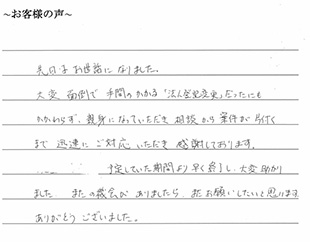 ~お客様の声~
先日は お世話に なりました。
大変 面倒で 手間の かかる「法人登記変更」だったにも
かかわらず、親身に なっていただき 相談から 案件が 片付く
まで 迅速に ご対応 いただき 感謝しております。
予定していた 期間より 早く 終了し、大変 助かり
ました。またの 機会が ありましたら、また お願いしたいと 思います。
ありがとう ございました。